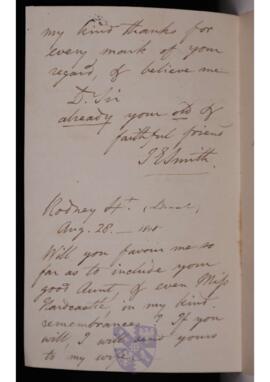 my kind thanks for
every mark of your
regard, & believe me
Dr. Sir
already your old &
faithful friend
J E Smith.
Rodney St.
Aug. 28 —
Will you favour me so
far as to include your
good Aunt, & even Miss
Hardcastle in my kind
remembrances? If you
will, I will send yours
to my wife.